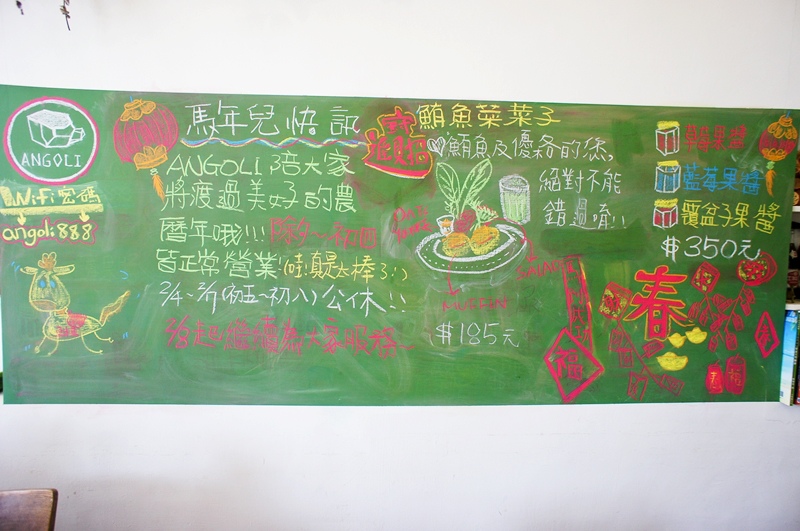 ANGOLI
Wifi密碼
angoli888
馬年兒快訊
ANGOLI陪大家
將渡過美好的農
曆年哦!!!除夕~初四
皆正常營業(哇!真是太棒了:)
2/4~2/7(初五~初八)公休!!
2/8起繼續為大家服務~
鮪魚菜菜子
鮪魚及優格的您,
絕對不能
錯過唷!!
MUFFIN
SALAD
$185元
草莓果醬
藍莓果醬
覆盆子果醬
$350元
春
福